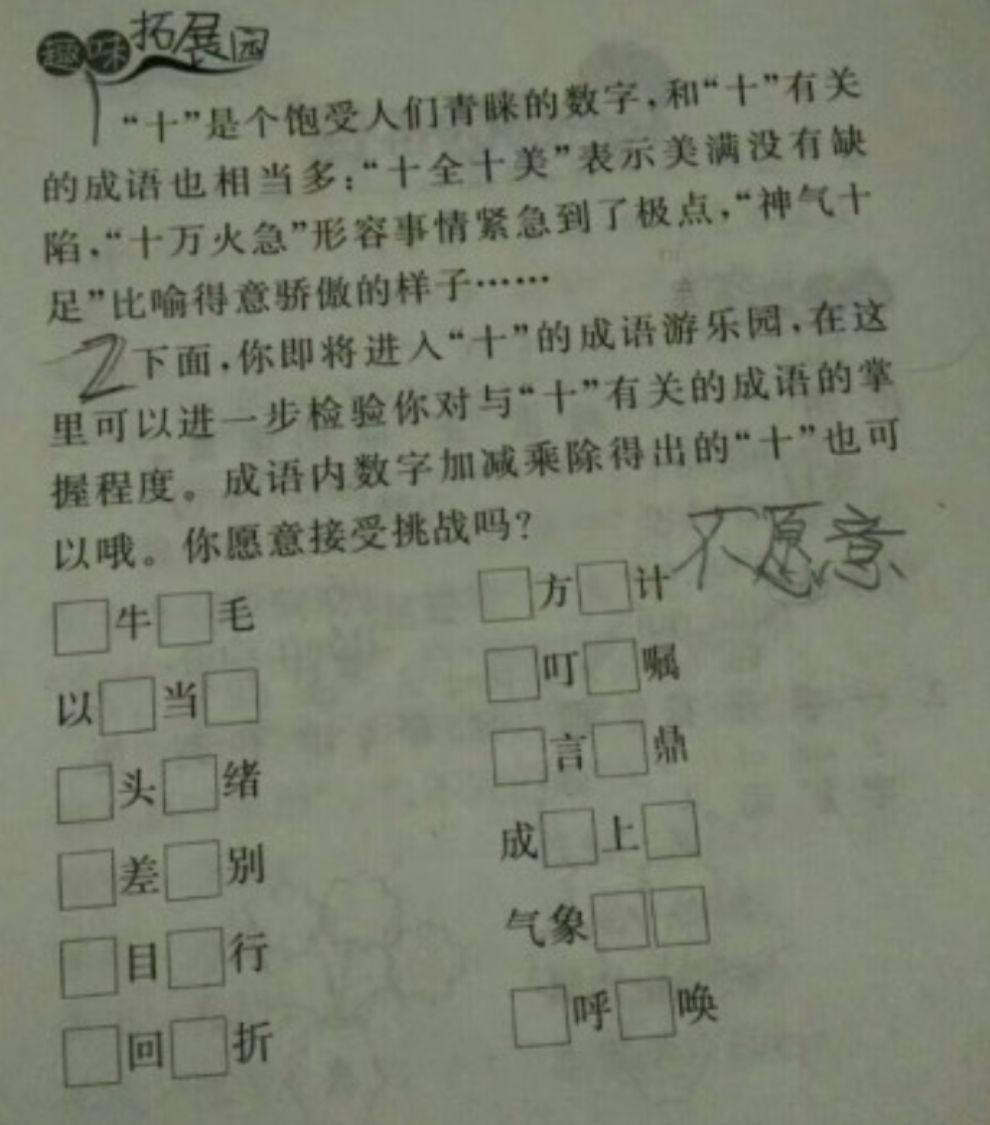 趣味拓展园
“十”是个饱受人们青睐的数字，和“十”有关
的成语也相当多：“十全十美”表示美满没有缺
陷，“十万火急”形容事情紧急到了极点，“神气十
足”比喻得意骄傲的样子……
2下面，你即将进入“十”的成语游乐园，在这
里可以进一步检验你对与“十”有关的成语的掌
握程度。成语内数字加减乘除得出的“十”也可
以哦。你愿意接受挑战吗？不愿意
□牛□毛 □方□计
以□当□ □叮□嘱
□头□绪 □言□鼎
□差□别 成□上□
□目□行 气象□□
□回□折 □呼□唤